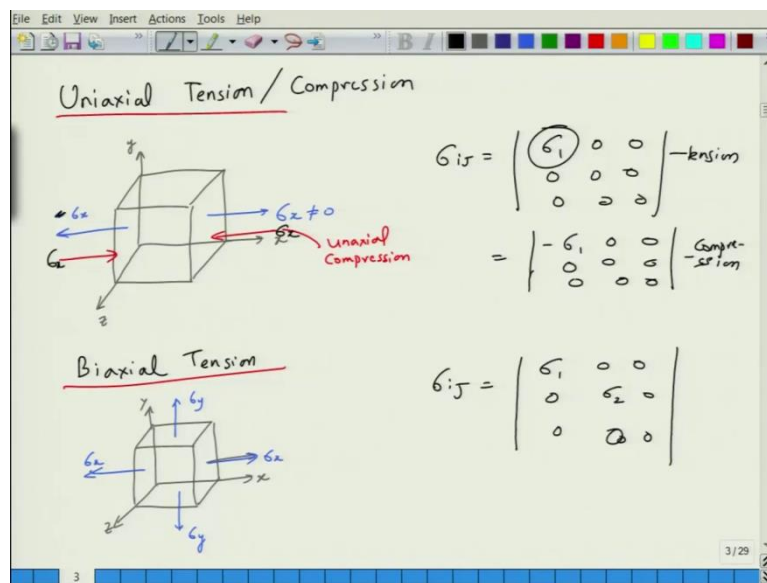 File Edit View Insert Actions Tools Help
Uniaxial Tension / Compression
y
σx
σx ≠ 0
σx
x
σx
uniaxial
Compression
z
σij = | σ1 0 0 | - tension
0 0 0
0 0 0
= | -σ1 0 0 | - Compre-
0 0 0 ssion
0 0 0
Biaxial Tension
y
σy
σx
σx
x
z
σy
σij = | σ1 0 0 |
0 σ2 0
0 0 0
3/29
3